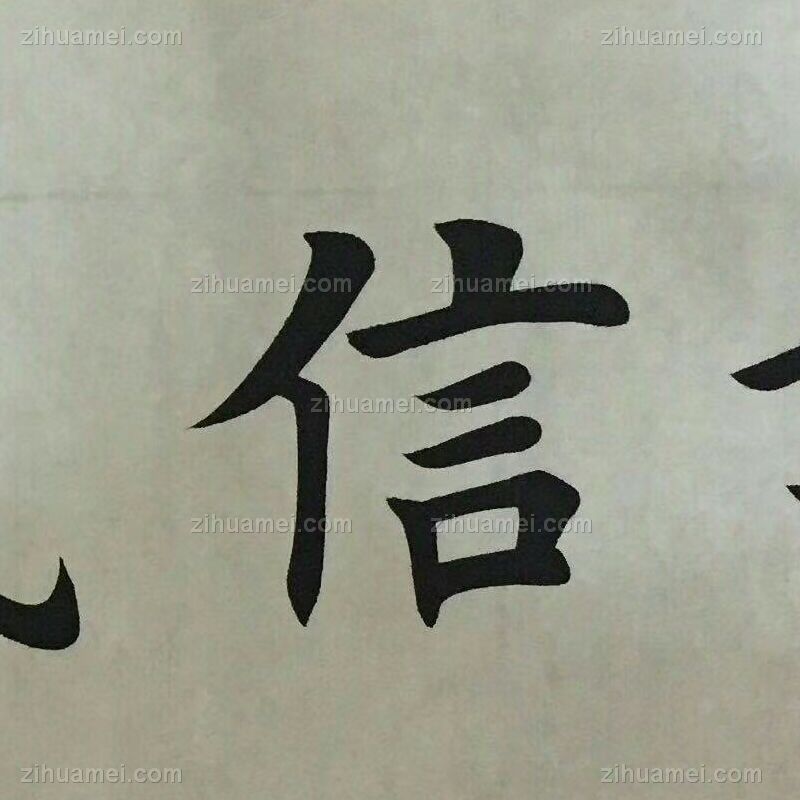 zihuamei.com zihuamei.com
zihuamei.com zihuamei.com
zihuamei.com
zihuamei.com zihuamei.com
zihuamei.com zihuamei.com
信